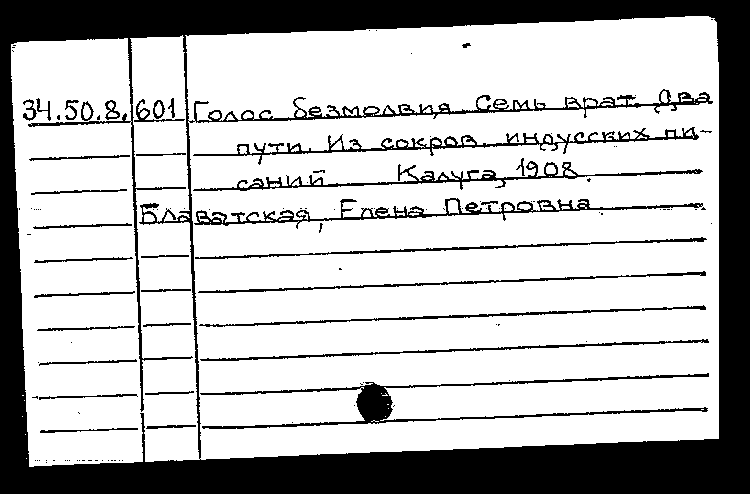 34.50.8.601 Голос безмолвия. Семь врат. Два
пути. Из сокров. индусских пи-
саний. Калуга, 1908.
Блаватская, Елена Петровна.